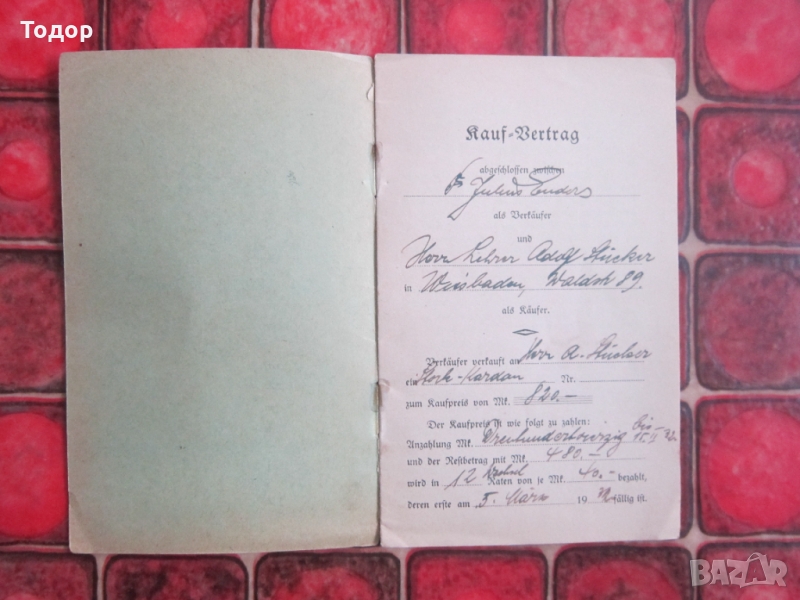 Тодор
Kauf-Vertrag
abgeschlossen zwischen
Julius Enders
als Verkäufer
und
Herr Lehrer Adolf Stücker
in Wiesbaden, Waldstr 89.
als Käufer.
Verkäufer verkauft an Herr A. Stücker
ein Stock-Kardan Nr.
zum Kaufpreis von Mk. 820.-
Der Kaufpreis ist wie folgt zu zahlen:
Anzahlung Mk. Dreihundertvierzig bis
und der Restbetrag mit Mk. 480.-
wird in 12 Raten von je Mk. 40.- bezahlt,
deren erste am 5. März 19 fällig ist.
BAZAR